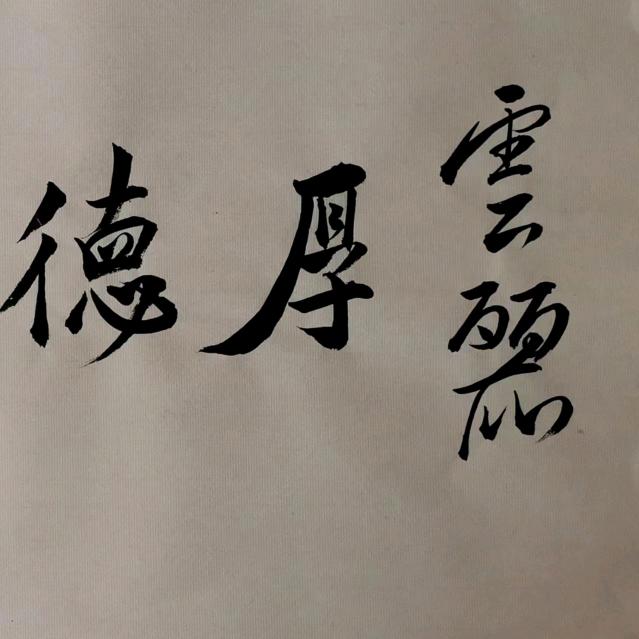 雲麗
厚德